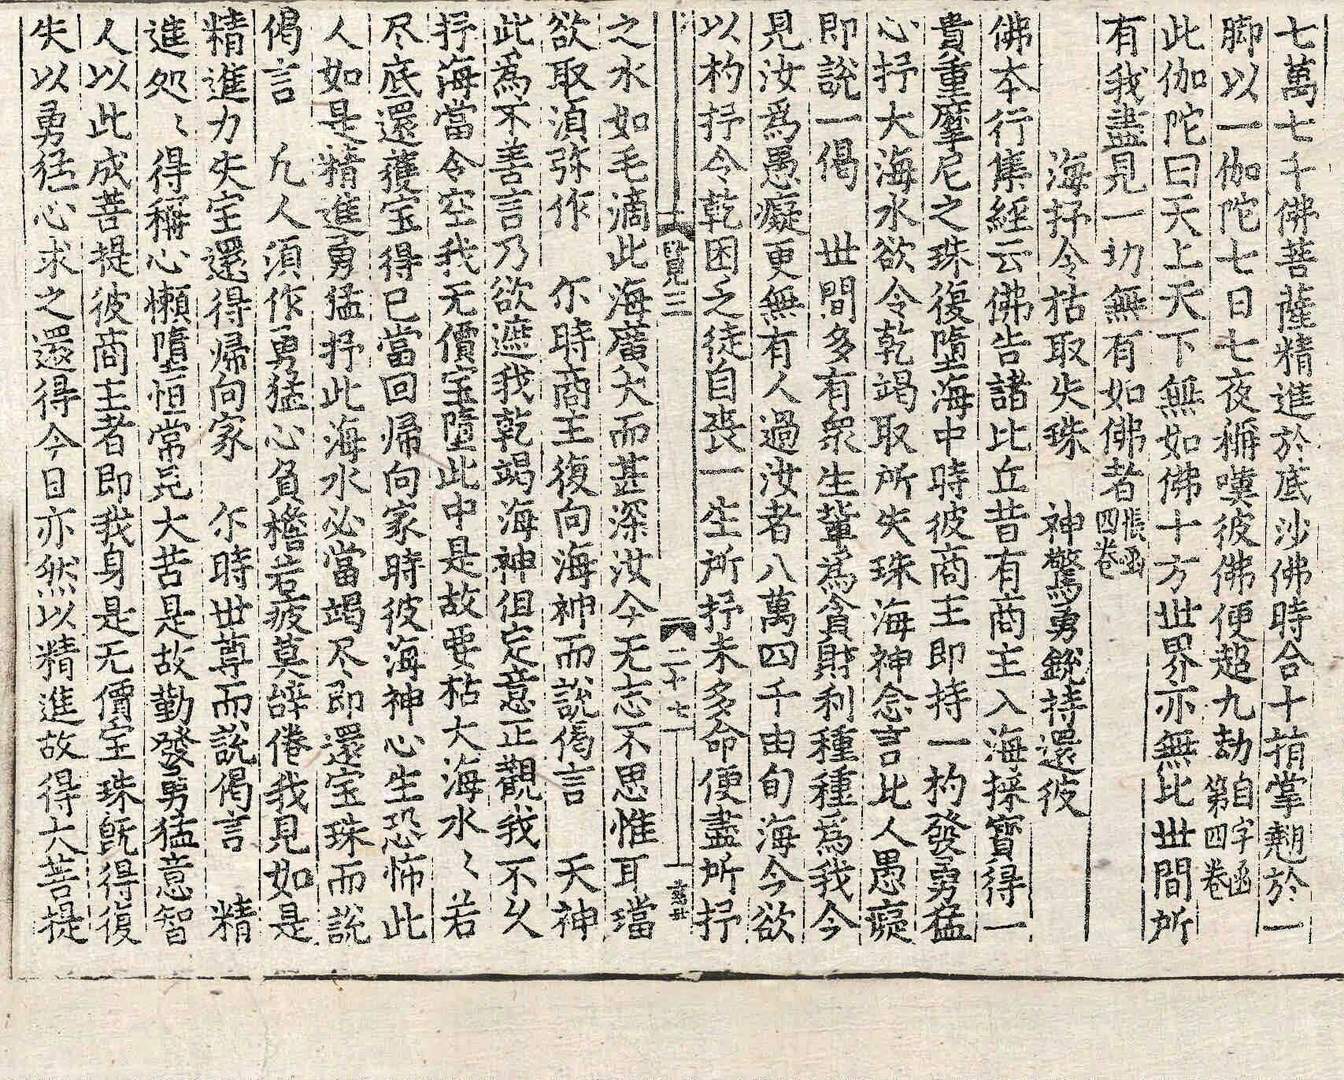 七萬七千佛菩薩精進於底沙佛時合十指掌翹於一
脚以一伽陀七日七夜稱嘆彼佛便超九劫自字函第四卷
此伽陀曰天上天下無如佛十方世界亦無比世間所
有我盡見一切無有如佛者悵函四卷
海抒令枯取失珠 神驚勇銳持還彼
佛本行集經云佛告諸比丘昔有商主入海採寶得一
貴重摩尼之珠復墮海中時彼商王即持一杓發勇猛
心抒大海水欲令乾竭取所失珠海神念言此人愚癡
即說一偈 世間多有衆生輩為貪財利種種爲我今
見汝爲愚癡更無有人過汝者八萬四千由旬海今欲
以杓抒令乾困乏徒自喪一生所抒未多命便盡所抒
賢三 二十七
之水如毛滴此海廣大而甚深汝今无志不思惟耳璫
欲取湏弥作 尒時商主復向海神而說偈言 天神
此為不善言乃欲遮我乾竭海神但定意正觀我不久
抒海當令空我无價宝墮此中是故要枯大海水〻若
尽底還獲宝得已當回帰向家時彼海神心生恐怖此
人如是精進勇猛抒此海水必當竭尽即還宝珠而說
偈言 凢人湏作勇猛心負檐若疲莫辝倦我見如是
精進力失宝還得帰向家 尒時世尊而說偈言 精
進処〻得稱心懶墮恒常見大苦是故勤發勇猛意智
人以此成菩提彼商主者即我身是无價宝珠旣得復
失以勇猛心求之還得今日亦然以精進故得大菩提